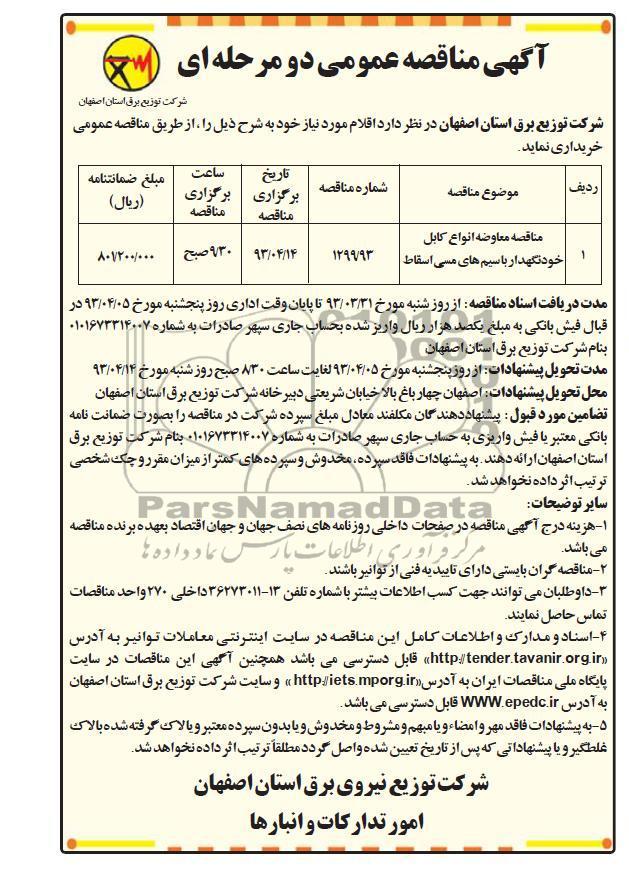 آگهی مناقصه عمومی دو مرحله ای
شرکت توزیع برق استان اصفهان
شرکت توزیع برق استان اصفهان در نظر دارد اقلام مورد نیاز خود به شرح ذیل را ، از طریق مناقصه عمومی
خریداری نماید.
ردیف	موضوع مناقصه	شماره مناقصه	تاریخ برگزاری مناقصه	ساعت برگزاری مناقصه	مبلغ ضمانتنامه (ریال)
۱	مناقصه معاوضه انواع کابل خودنگهدار با سیم های مسی اسقاط	۱۲۹۹/۹۳	۹۳/۰۴/۱۴	۹/۳۰صبح	۸۰۱/۲۰۰/۰۰۰
مدت دریافت اسناد مناقصه : از روز شنبه مورخ ۹۳/۰۳/۳۱ تا پایان وقت اداری روز پنجشنبه مورخ ۹۳/۰۴/۰۵ در
قبال فیش بانکی به مبلغ یکصد هزار ریال واریز شده بحساب جاری سپهر صادرات به شماره ۰۱۰۱۶۷۳۳۱۴۰۰۷
بنام شرکت توزیع برق استان اصفهان
مدت تحویل پیشنهادات: از روز پنجشنبه مورخ ۹۳/۰۴/۰۵ لغایت ساعت ۸/۳۰ صبح روز شنبه مورخ ۹۳/۰۴/۱۴
محل تحویل پیشنهادات: اصفهان چهارباغ بالا خیابان شریعتی دبیرخانه شرکت توزیع برق استان اصفهان
تضامین مورد قبول : پیشنهاددهندگان مکلفند معادل مبلغ سپرده شرکت در مناقصه را بصورت ضمانت نامه
بانکی معتبر یا فیش واریزی به حساب جاری سپهر صادرات به شماره ۰۱۰۱۶۷۳۳۱۴۰۰۷ بنام شرکت توزیع برق
استان اصفهان ارائه دهند. به پیشنهادات فاقد سپرده، مخدوش و سپرده های کمتر از میزان مقرر و چک شخصی
ترتیب اثر داده نخواهد شد.
سایر توضیحات:
۱-هزینه درج آگهی مناقصه در صفحات داخلی روزنامه های نصف جهان و جهان اقتصاد بعهده برنده مناقصه
می باشد.
۲-مناقصه گران بایستی دارای تاییدیه فنی از توانیر باشند.
۳-داوطلبان می توانند جهت کسب اطلاعات بیشتر با شماره تلفن ۱۳-۳۶۲۷۳۰۱۱ داخلی ۲۷۰ واحد مناقصات
تماس حاصل نمایند.
۴-اسناد و مدارک و اطلاعات کامل این مناقصه در سایت اینترنتی معاملات توانیر به آدرس
«http://tender.tavanir.org.ir» قابل دسترسی می باشد همچنین آگهی این مناقصات در سایت
پایگاه ملی مناقصات ایران به آدرس«http://iets.mporg.ir » و سایت شرکت توزیع برق استان اصفهان
به آدرس WWW.epedc.ir قابل دسترسی می باشد.
۵-به پیشنهادات فاقد مهر و امضاء و یا مبهم و مشروط و مخدوش و یا بدون سپرده معتبر و یا لاک گرفته شده با لاک
غلطگیر و یا پیشنهاداتی که پس از تاریخ تعیین شده واصل گردد مطلقاً ترتیب اثر داده نخواهد شد.
شرکت توزیع نیروی برق استان اصفهان
امور تدارکات و انبارها
ParsNamadData
مرکز فرآوری اطلاعات پارس نماد داده ها